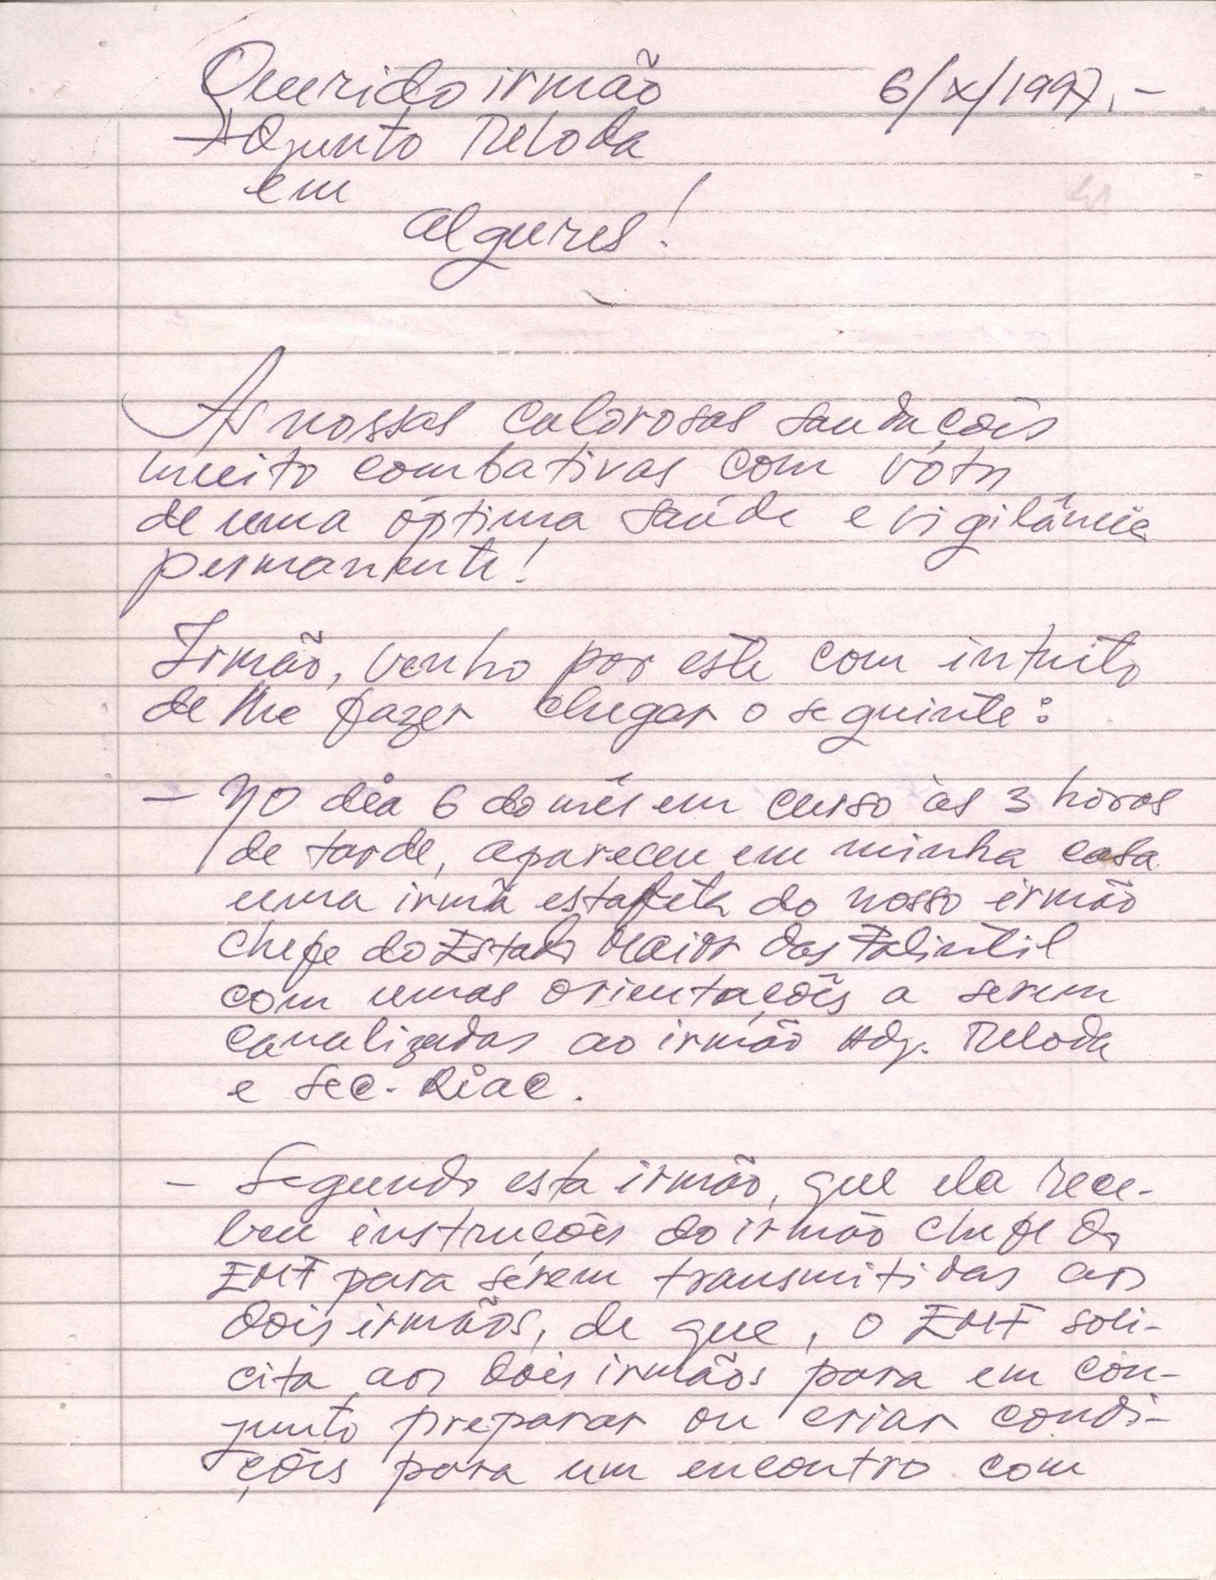 Querido irmão 6/X/1997.-
Adjunto Meloda
em
algures!
As nossas calorosas saudações
muito combativas com voto
de uma óptima saúde e vigilância
permanente!
Irmão, venho por este com intuito
de lhe fazer chegar o seguinte:
- No dia 6 do mês em curso às 3 horas
de tarde, apareceu em minha casa
uma irmã estafeta do nosso irmão
Chefe do Estado Maior das Falintil
com umas orientações a serem
canalizadas ao irmão Adj. Meloda
e Sec. Riac.
- Segundo esta irmão, que ela rece-
beu instruções do irmão Chefe do
EMF para serem transmitidas aos
dois irmãos, de que, o EMF soli-
cita aos dois irmãos para em con-
junto preparar ou criar condi-
ções para um encontro com